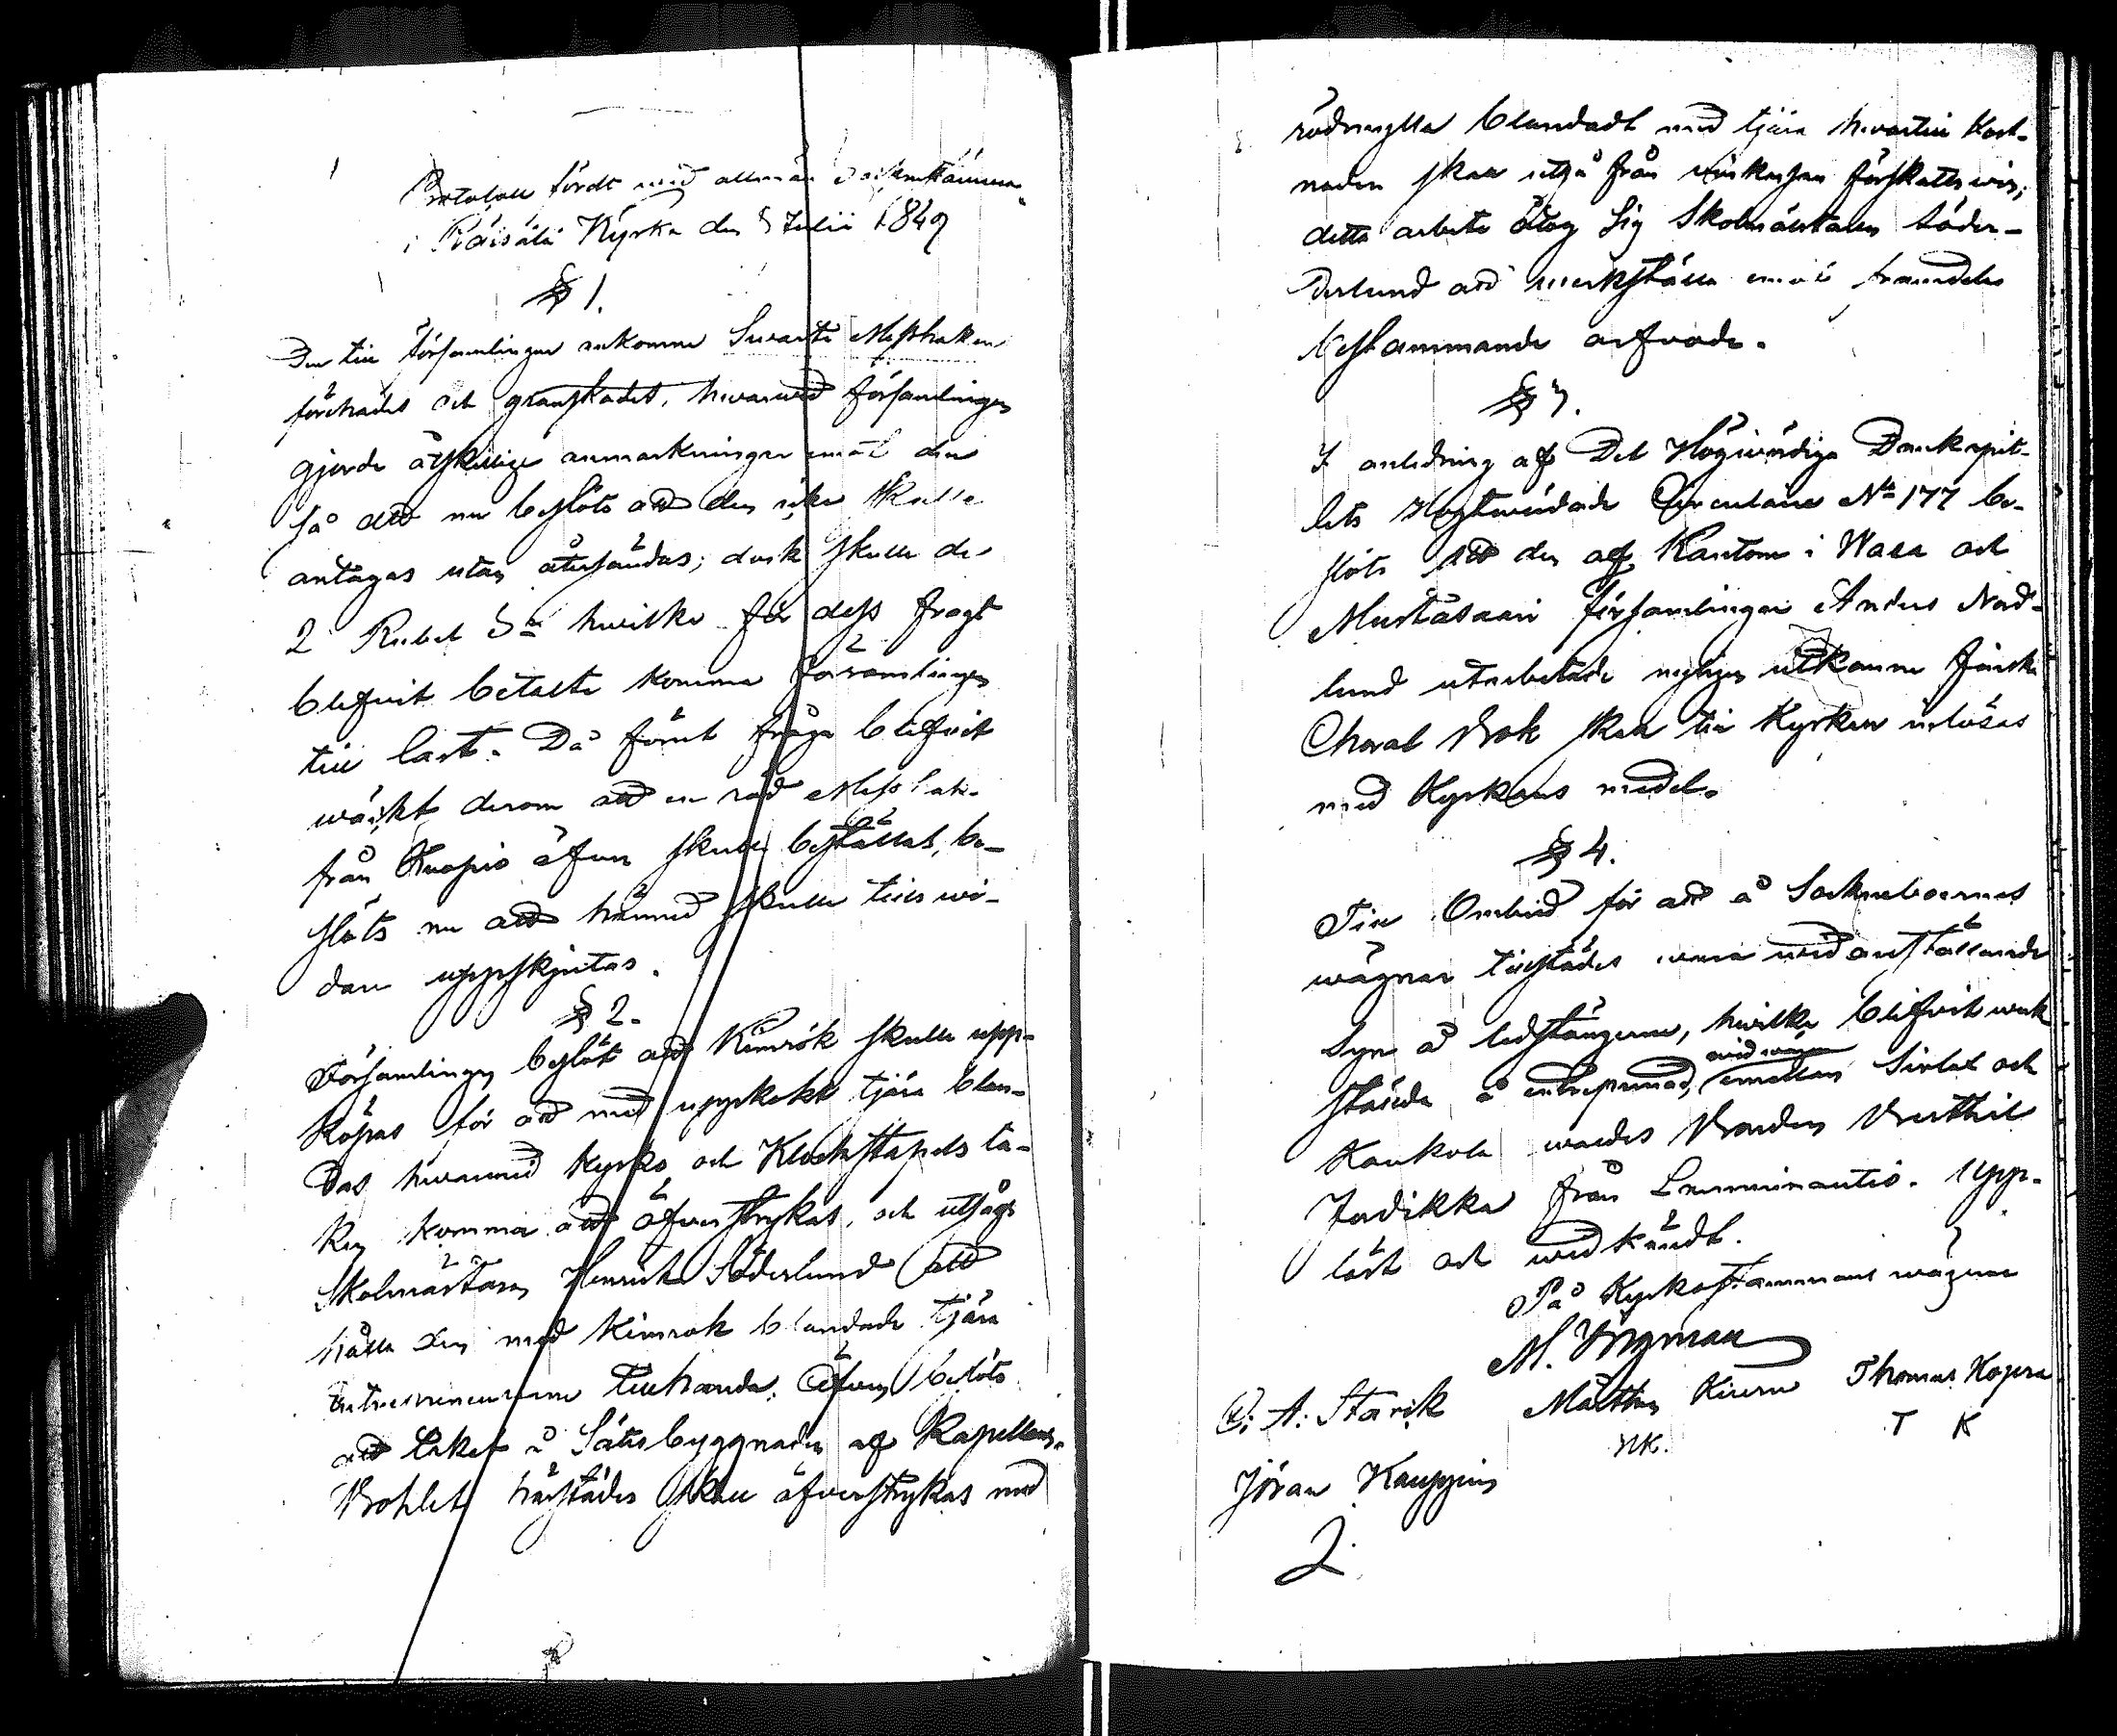 Protokoll fördt wid allmän Sockenstämma
i Räisälä Kyrka den 8 Julii 1849
§ 1.
Den till Församlingen ankomne Swarta Messhaken
företrades och granskades, hwarwid församlingen
gjorde åtskillige anmärkningar emot den
så att nu beslöts att den icke skulle
antagas utan återsändas; dock skulle de
2 Rubel S:r hwilka för dess fragt
blifwit betalte komma församlingen
till last. Då förut fråga blifwit
wäckt derom att en röd Messhake
från Kuopio äfven skulle beställas, be-
slöts nu att härmed skulle tills wi-
dare uppskjutas.
§ 2.
Församlingen beslöt att Kimrök skulle upp-
köpas för att med uppkokt tjära blan-
das hwarmed Kyrko och Klockstapels ta-
ken komma att öfverstrykas, och utsågs
Skolmästaren Henrik Söderlund att
hålla den med Kimrok blandade tjära
entreprenenterne tillhanda. Äfven beslöts
att taket å Sätesbyggnaden af Kapellans
Bohlet härstädes skall öfverstrykas med
rödmylla blandadt med tjära hwartill Kost-
naden skall utgå från winkassan förskottswis;
detta arbete åtog sig Skolmästaren Söder-
derlund att werkställa emot framdeles
bestämmande arfvode.
§ 3.
I anledning af Det Högwördiga Domkapit-
lets Högtwördade Circulaire N:o 177 be-
slöts att den af Kantorn i Wasa och
Mustasaari församlingar Anders Nord-
lund utarbetade nyligen utkomne finska
Choral Bok skall till Kyrkan inlösas
med Kyrkans medel.
§ 4.
Till Ombud för att å Sockneboernes
wägnar tillstädes wara wid anställande
Syn å ledstängerne, hwilka blifvit werk
ställda å entreprenad, wid wägen emellan Sirlat och
Kaukola waldes Bonden Berthil
Jordikka från Lamminautio. Upp-
läst och wedkändt.
På Kyrkostämmans wägnar
M. Wegman
C: A: Starck Matthus Kiuru Thomas Kopra
NK. T K
Jöran Kauppins
2.